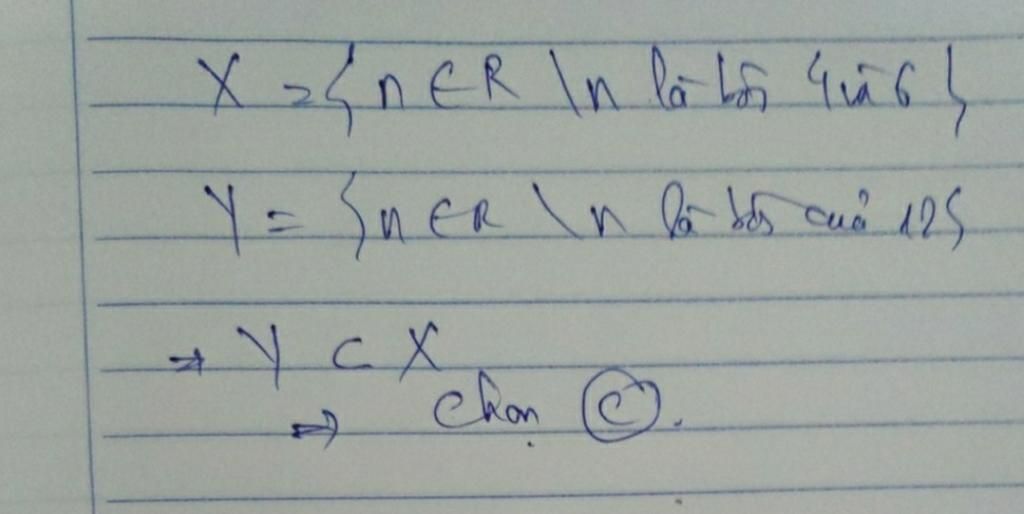 X = { n ∈ R \ n là bội 4 và 6 }
Y = { n ∈ R \ n là bội của 12 }
→ Y ⊂ X
⇒ Chọn C.